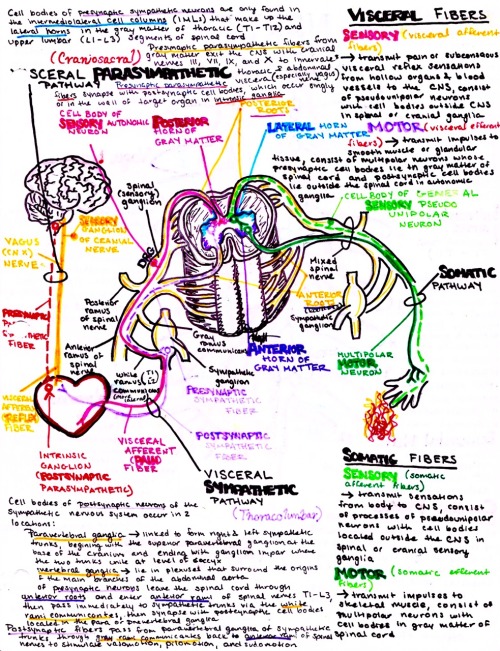 Cell bodies of presynaptic sympathetic neurons are only found in
the intermediolateral cell columns (IMLs) that make up the
lateral horns in the gray matter of thoracic (T1-T12) and
upper lumbar (L1-L3) segments of spinal cord
(Craniosacral)
Presynaptic parasympathetic fibers from
gray matter exit the CNS with cranial
nerves III, VII, IX, and X to innervate
thoracic & abdominal
viscera (especially vagus)
VISCERAL PARASYMPATHETIC
PATHWAY
Presynaptic parasympathetic
fibers synapse with postsynaptic cell bodies, which occur singly
or in the wall of target organ in intrinsic ganglia
CELL BODY OF
SENSORY AUTONOMIC
NEURON
POSTERIOR
HORN OF
GRAY MATTER
POSTERIOR
ROOTS
LATERAL HORN
OF GRAY MATTER
VISCERAL FIBERS
SENSORY (visceral afferent
fibers)
→ transmit pain or subconscious
visceral reflex sensations
from hollow organs & blood
vessels to the CNS, consist
of pseudounipolar neurons
with cell bodies outside CNS
in spinal or cranial ganglia
MOTOR (visceral efferent
fibers) → transmit impulses to
smooth muscle or glandular
tissue, consist of multipolar neurons whose
presynaptic cell bodies lie in gray matter of
spinal cord and postsynaptic cell bodies
lie outside the spinal cord in autonomic
ganglia
CELL BODY OF GENERAL
SENSORY PSEUDO
UNIPOLAR
NEURON
Spinal
(sensory)
ganglion
DRG
SENSORY
GANGLION
OF CRANIAL
NERVE
VAGUS
(CN X)
NERVE
PRESYNAPTIC
FIBER
Posterior
ramus of
spinal
nerve
Anterior
ramus of
spinal
nerve
Mixed
spinal
nerve
ANTERIOR
ROOTS
Sympathetic
ganglion
SOMATIC
PATHWAY
Gray
ramus
communicans
ANTERIOR
HORN OF
GRAY MATTER
White
ramus
communicans
Sympathetic
ganglion
PRESYNAPTIC
SYMPATHETIC
FIBER
MULTIPOLAR
MOTOR
NEURON
VISCERAL
AFFERENT
REFLEX
FIBER
POSTSYNAPTIC
SYMPATHETIC
FIBER
INTRINSIC
GANGLION
(POSTSYNAPTIC
PARASYMPATHETIC)
VISCERAL
AFFERENT
(PAIN)
FIBER
VISCERAL
SYMPATHETIC
PATHWAY
(Thoracolumbar)
Cell bodies of postsynaptic neurons of the
sympathetic nervous system occur in 2
locations:
Paravertebral ganglia → linked to form right & left sympathetic
trunks, beginning with the superior paravertebral ganglion at the
base of the cranium and ending with ganglion impar where
the two trunks unite at level of coccyx
vertebral ganglia → lie in plexuses that surround the origins
of the main branches of the abdominal aorta
of presynaptic neurons leave the spinal cord through
anterior roots and enter anterior rami of spinal nerves T1-L3,
then pass immediately to sympathetic trunks via the white
rami communicantes, then synapse with postsynaptic cell bodies
located in the para or prevertebral ganglia
Postsynaptic fibers pass from paravertebral ganglia of sympathetic
trunks through gray rami communicantes back to anterior rami of spinal
nerves to stimulate vasomotion, pilomotion, and sudomotion
SOMATIC FIBERS
SENSORY (somatic
afferent fibers)
→ transmit sensations
from body to CNS, consist
of processes of pseudounipolar
neurons with cell bodies
located outside the CNS in
spinal or cranial sensory
ganglia
MOTOR (somatic efferent
fibers)
→ transmit impulses to
skeletal muscle, consist of
multipolar neurons with
cell bodies in gray matter of
spinal cord